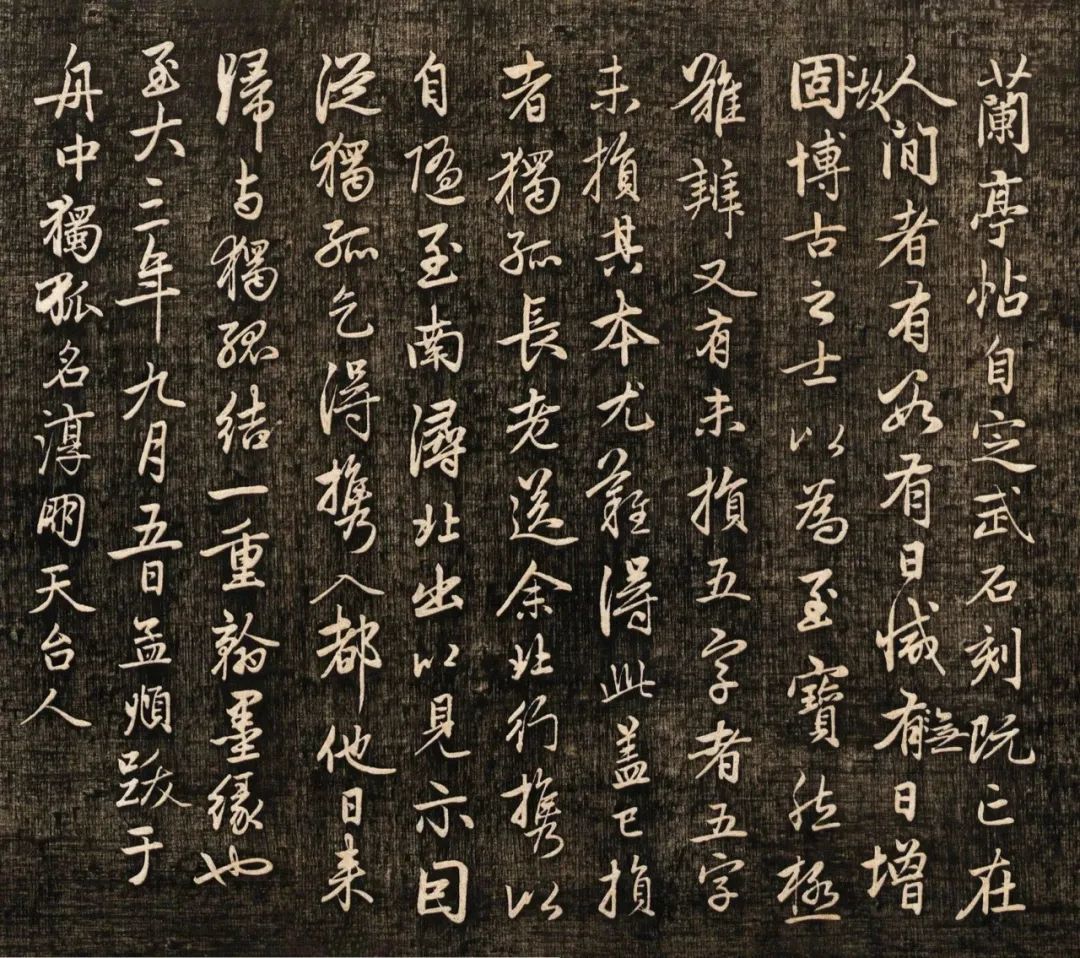 蘭亭帖自定武石刻既亡在
人間者有數有日減有無日增
固故博古之士以為至寶然極
難辨又有未損五字者五字
未損其本尤難得此蓋已損
者獨孤長老送余北行攜以
自隨至南潯北出以見示因
從獨孤乞得攜入都他日來
歸与獨孤結一重翰墨緣也
至大三年九月五日孟頫跋于
舟中獨孤名淳朋天台人